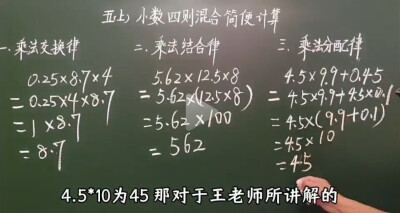 五(上)小数四则混合简便计算
一、乘法交换律
0.25×8.7×4
=0.25×4×8.7
=1×8.7
=8.7
二、乘法结合律
5.62×12.5×8
=5.62×(12.5×8)
=5.62×100
=562
三、乘法分配律
4.5×9.9+0.45
=4.5×9.9+4.5×0.1
=4.5×(9.9+0.1)
=4.5×10
=45
4.5*10为45 那对于王老师所讲解的